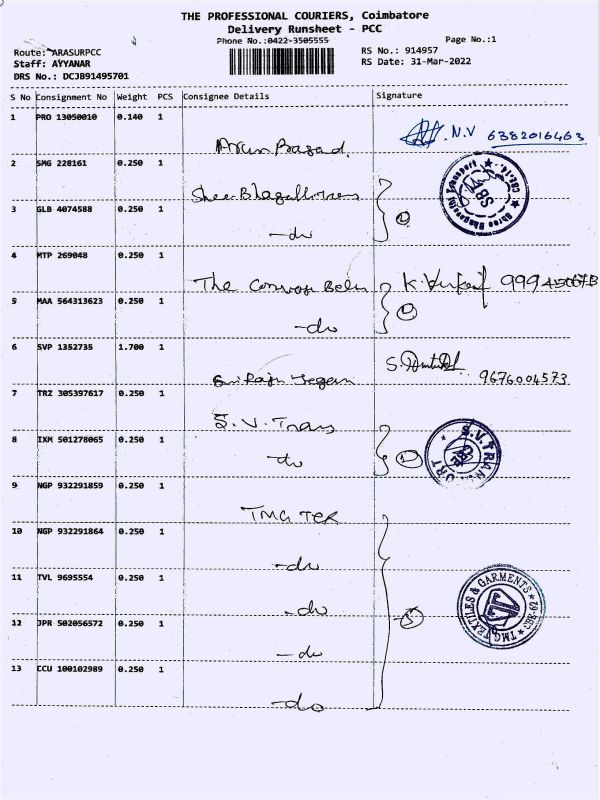 THE PROFESSIONAL COURIERS, Coimbatore
Delivery Runsheet - PCC
Phone No.:0422-3505555
Page No.:1
Route: ARASURPCC
RS No.: 914957
Staff: AYYANAR
RS Date: 31-Mar-2022
DRS No.: DCJB91495701
S No Consignment No Weight PCS Consignee Details Signature
1 PRO 13050010 0.140 1
Arun Prasad. N.V 6382016463
2 SMG 228161 0.250 1
3 GLB 4074588 0.250 1
-do
4 MTP 269048 0.250 1
The Convay Beln
5 MAA 564313623 0.250 1
-do
6 SVP 1352735 1.700 1
9676004573
7 TRZ 305397617 0.250 1
S.V. Trans
8 IXM 501278065 0.250 1
-do
S.V. TRANSPORT
9 NGP 932291859 0.250 1
TMG TEX
10 NGP 932291864 0.250 1
-do
11 TVL 9695554 0.250 1
-do
TMG TEXTILES & GARMENTS
12 JPR 502056572 0.250 1
-do
5
13 CCU 100102989 0.250 1
-do